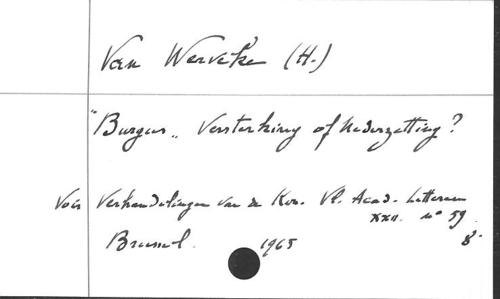 Van Werveke (H.)
"Burgus" Versterking of Nederzetting?
Voir Verhandelingen van de Kon. Vl. Acad. Letteren
XXII. n° 59
Brussel. 1965 8°